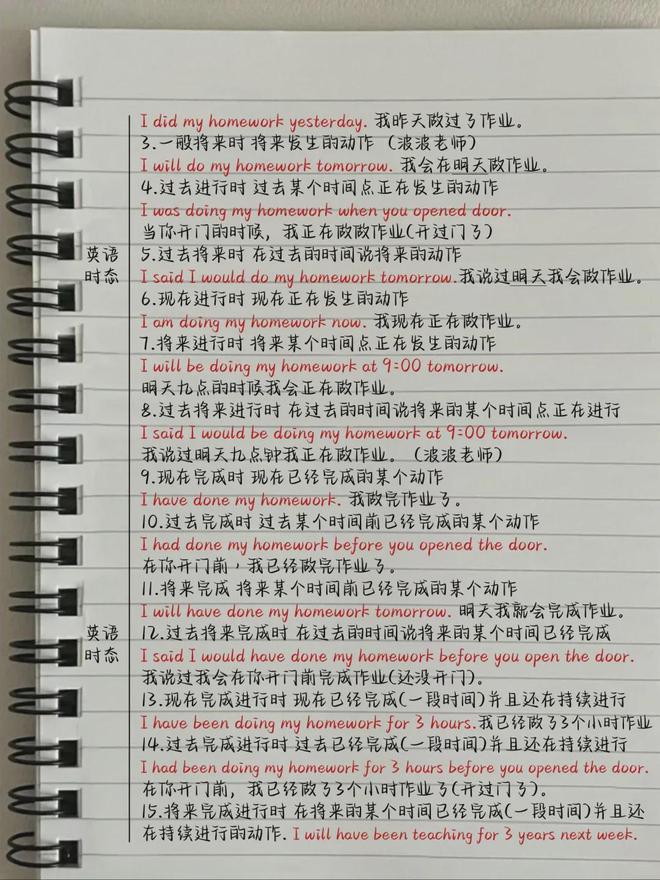 I did my homework yesterday. 我昨天做过了作业。
3.一般将来时 将来发生的动作 (波波老师)
I will do my homework tomorrow. 我会在明天做作业。
4.过去进行时 过去某个时间点正在发生的动作
I was doing my homework when you opened door.
当你开门的时候，我正在做做作业(开过门了)
英语时态
5.过去将来时 在过去的时间说将来的动作
I said I would do my homework tomorrow.我说过明天我会做作业。
6.现在进行时 现在正在发生的动作
I am doing my homework now. 我现在正在做作业。
7.将来进行时 将来某个时间点正在发生的动作
I will be doing my homework at 9:00 tomorrow.
明天九点的时候我会正在做作业。
8.过去将来进行时 在过去的时间说将来的某个时间点正在进行
I said I would be doing my homework at 9:00 tomorrow.
我说过明天九点钟我正在做作业。(波波老师)
9.现在完成时 现在已经完成的某个动作
I have done my homework. 我做完作业了。
10.过去完成时 过去某个时间前已经完成的某个动作
I had done my homework before you opened the door.
在你开门前，我已经做完作业了。
11.将来完成 将来某个时间前已经完成的某个动作
I will have done my homework tomorrow. 明天我就会完成作业。
英语时态
12.过去将来完成时 在过去的时间说将来的某个时间已经完成
I said I would have done my homework before you open the door.
我说过我会在你开门前完成作业(还没开门)。
13.现在完成进行时 现在已经完成(一段时间)并且还在持续进行
I have been doing my homework for 3 hours.我已经做了3个小时作业
14.过去完成进行时 过去已经完成(一段时间)并且还在持续进行
I had been doing my homework for 3 hours before you opened the door.
在你开门前，我已经做了3个小时作业了(开过门了)。
15.将来完成进行时 在将来的某个时间已经完成(一段时间)并且还
在持续进行的动作. I will have been teaching for 3 years next week.